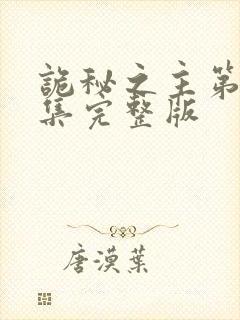 詭秘之主第
集完整版
唐漠葉